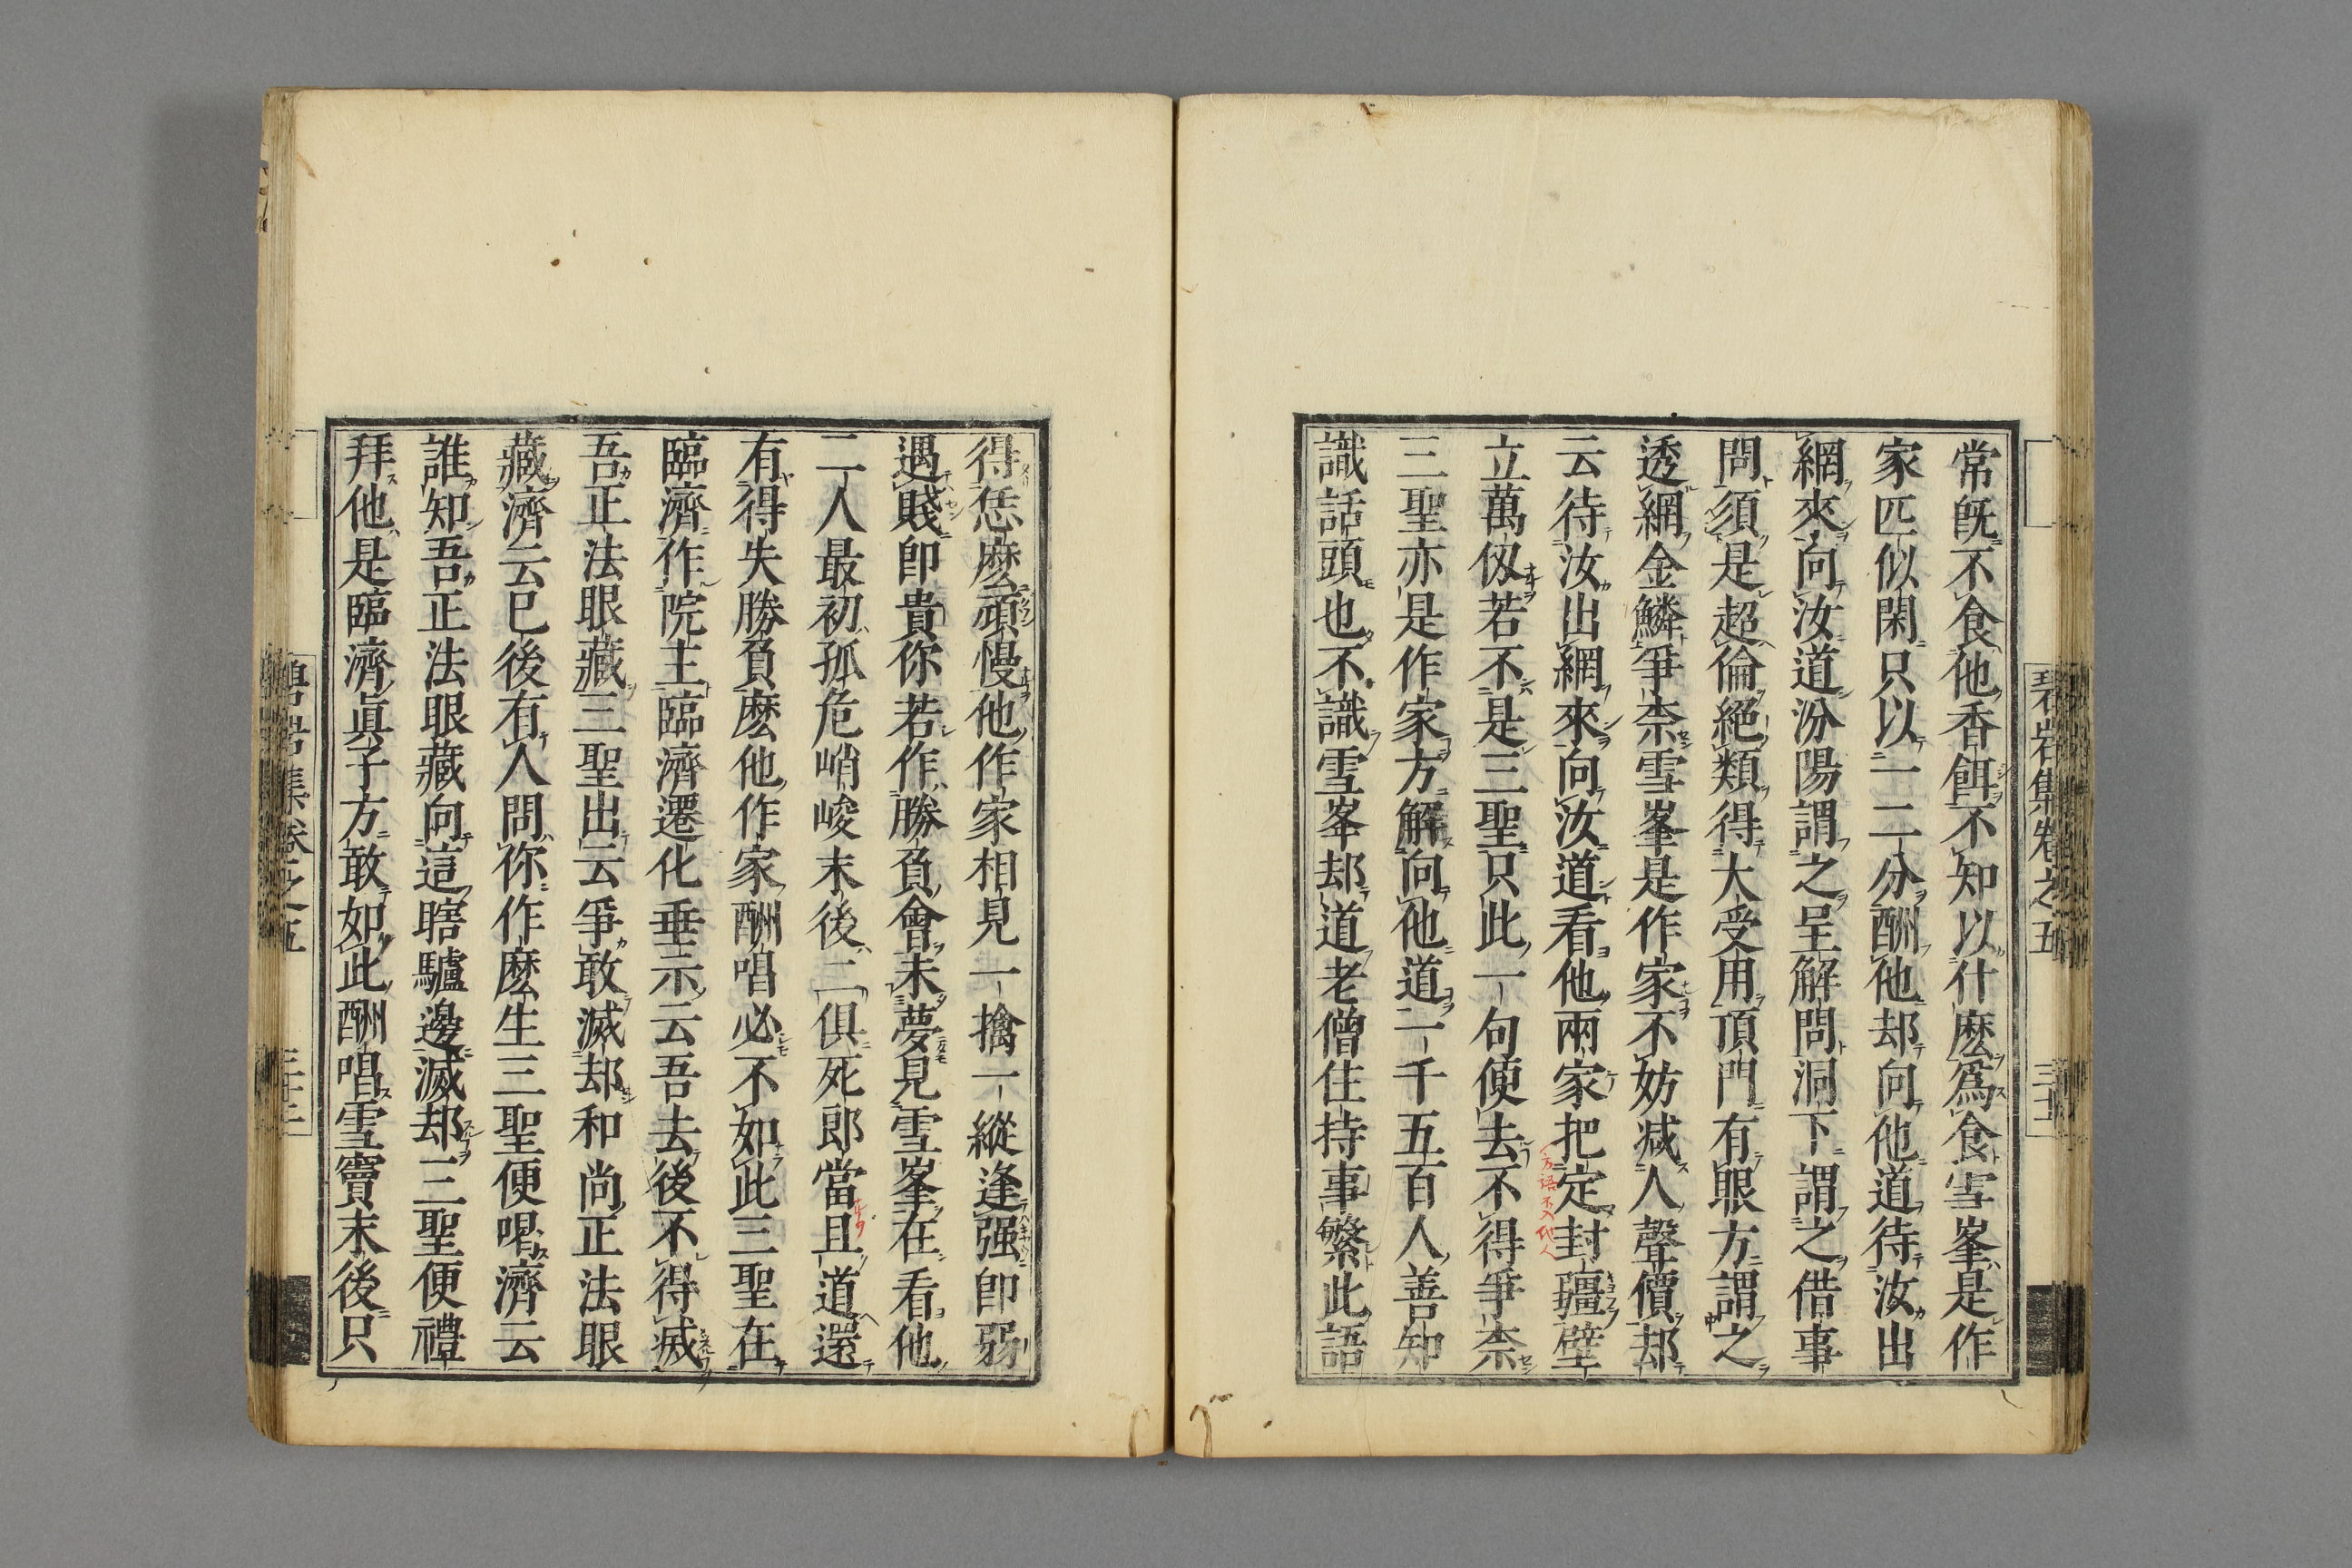 常旣不食他香餌不知以什麽爲食雪峯是作
家匹似閑只以一二分酬他却向他道待汝出
網來向汝道汾陽謂之呈解問洞下謂之借事
問須是超倫絕類得大受用頂門有眼方謂之
透網金鱗爭柰雪峯是作家不妨减人聲價却
云待汝出網來向汝道看他兩家把定封疆壁
立萬仭若不是三聖只此一句便去不得爭柰
三聖亦是作家方解向他道一千五百人善知
識話頭也不識雪峯却道老僧住持事繁此語
得恁麽頑慢他作家相見一擒一縱逢强卽弱
遇賤卽貴你若作勝負會未夢見雪峯在看他
二人最初孤危峭峻末後二俱死郎當且道還
有得失勝負麽他作家酬唱必不如此三聖在
臨濟作院主臨濟遷化垂示云吾去後不得滅
吾正法眼藏三聖出云爭敢滅却和尚正法眼
藏濟云已後有人問你作麽生三聖便喝濟云
誰知吾正法眼藏向這瞎驢邊滅却三聖便禮
拜他是臨濟眞子方敢如此酬唱雪竇末後只
碧岩集卷之五